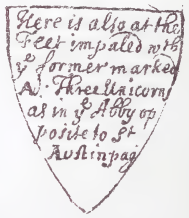 Here is also at the
Feet impaled wth
ye former marked
A. Three Unicorns
as in ye Abby op
posite to St
Austin pag